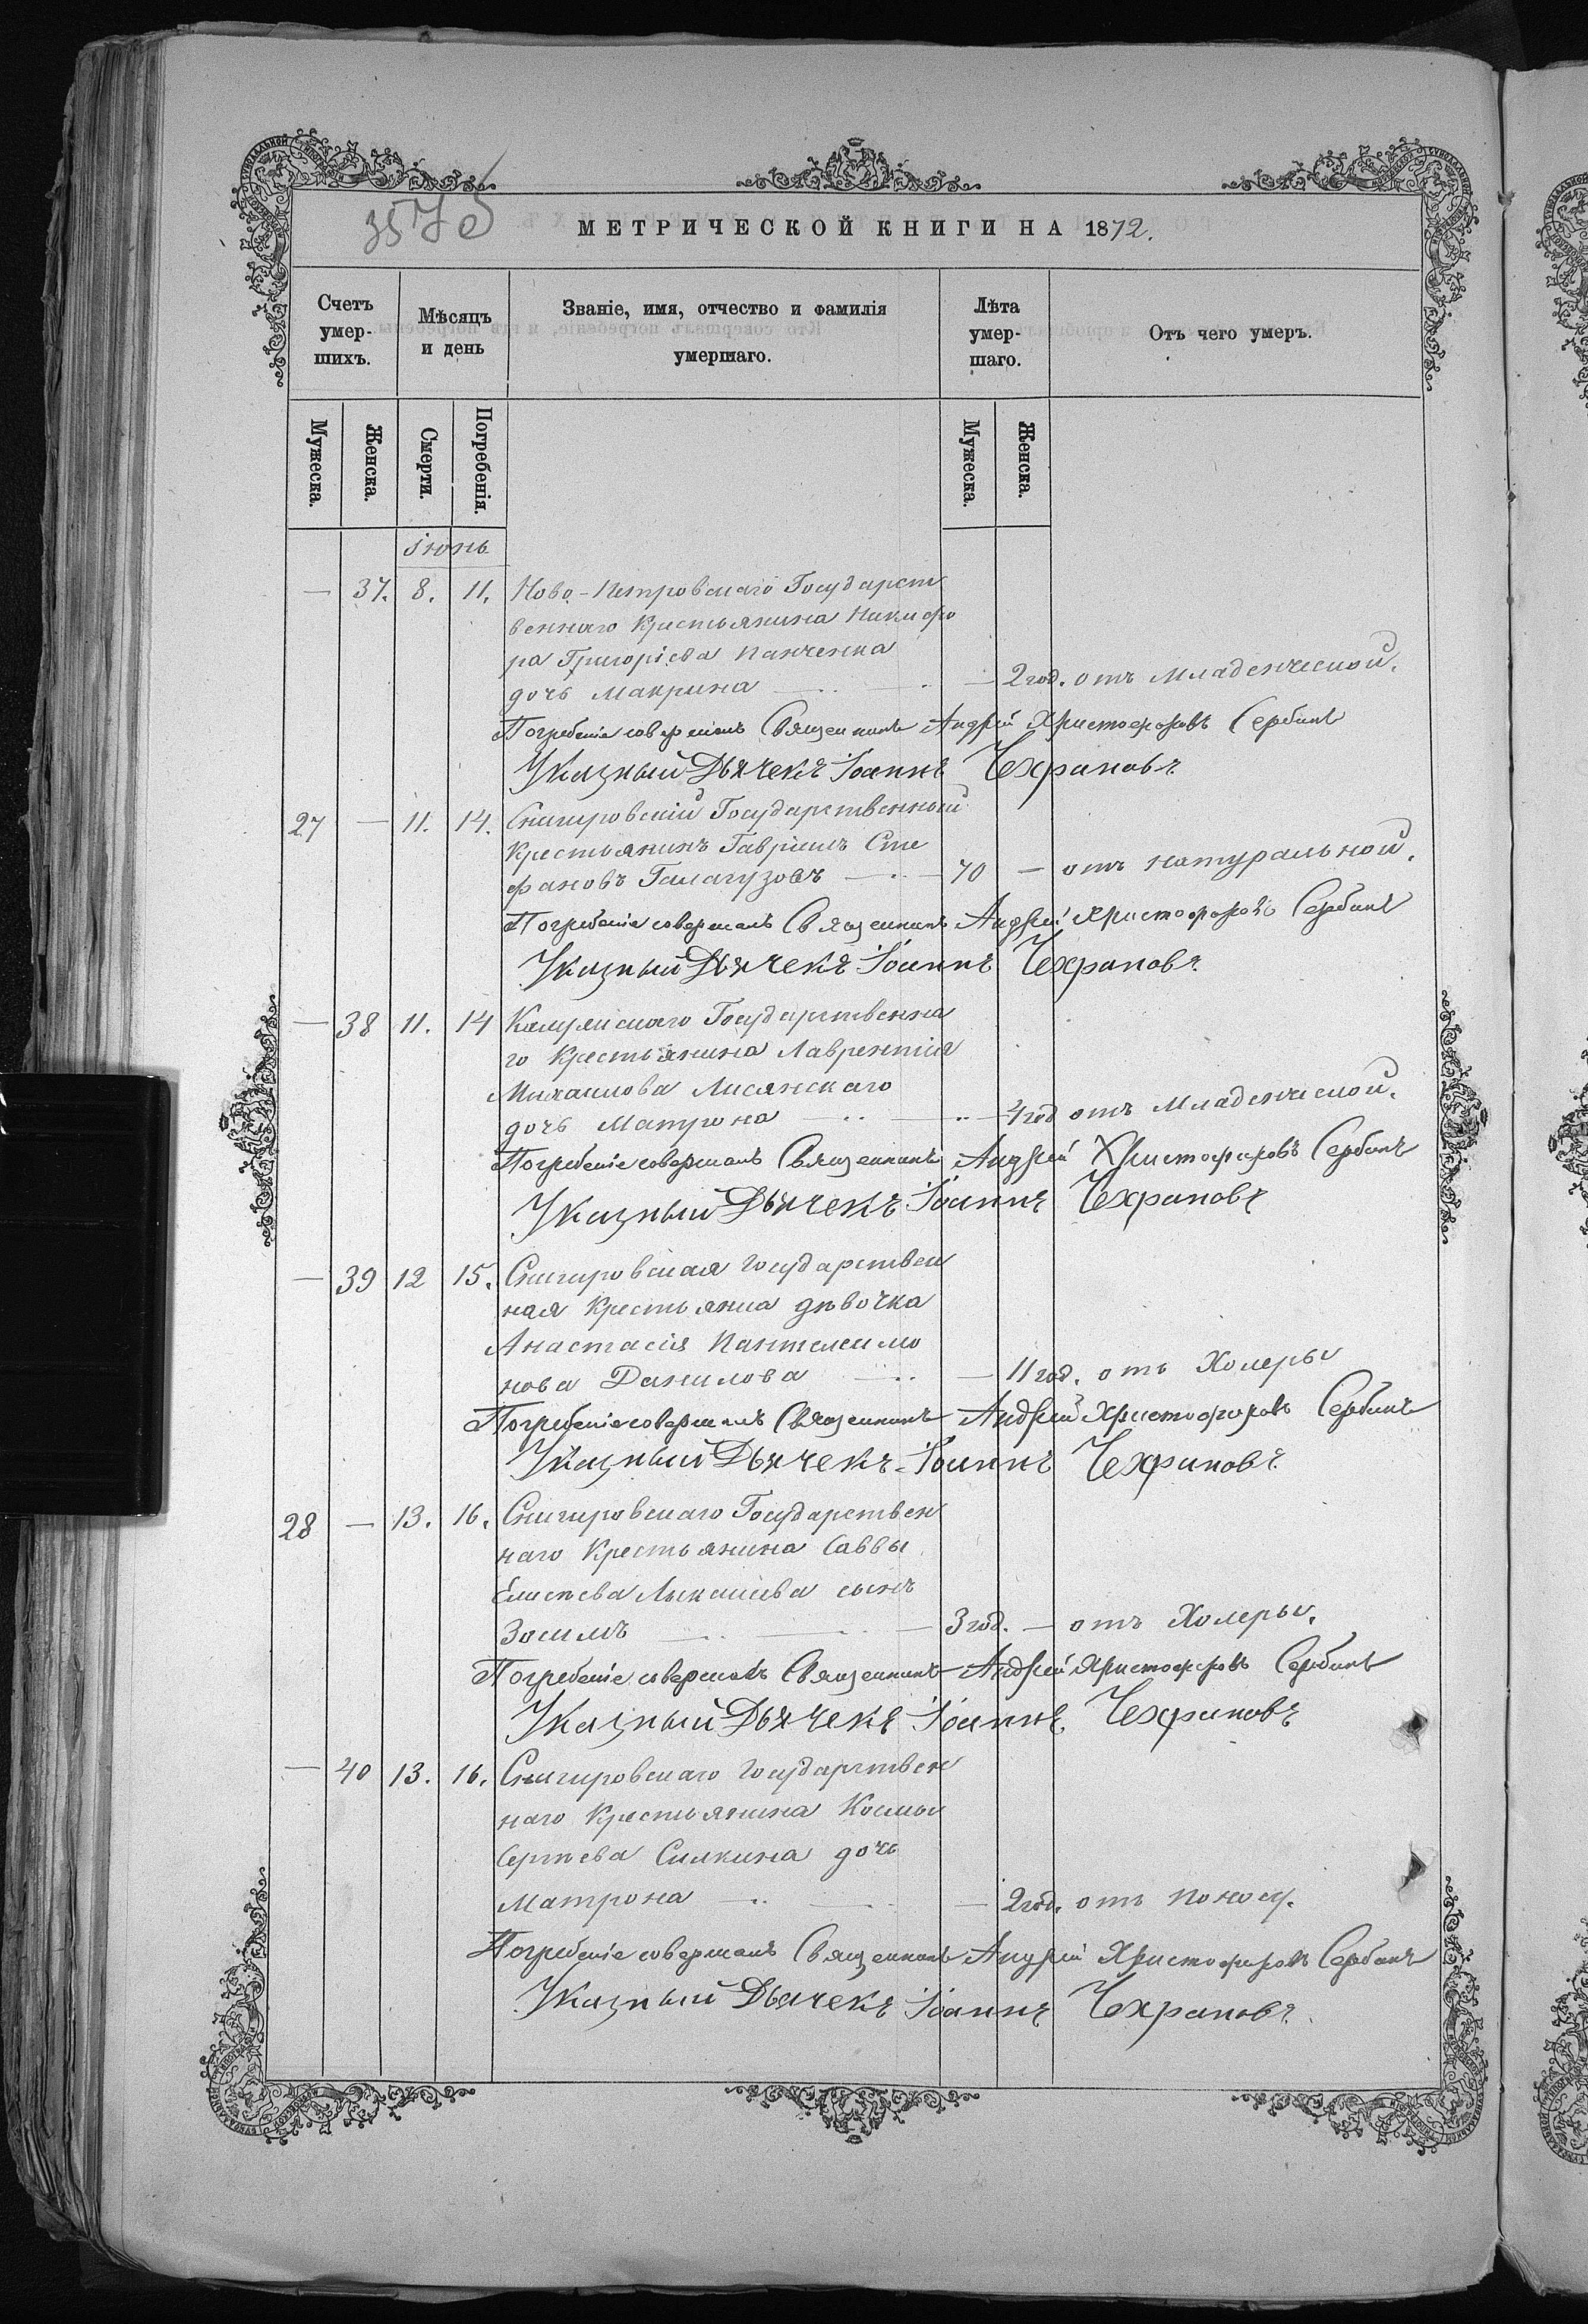 МЕТРИЧЕСКОЙ КНИГИ НА 1872.
Счетъ умер-шихъ.
Мѣсяцъ и день
Званіе, имя, отчество и фамилія умершаго.
Лѣта умер-шаго.
Отъ чего умеръ.
Мужеска.
Женска.
Смерти.
Погребенія.
Мужеска.
Женска.
Іюнь
— 37. 8. 11. Ново-Петровскаго Государст
веннаго Крестьянина Никифо
ра Григоріева Панченка
дочь Макрина — 2 год. отъ Младенческой.
Погребеніе совершалъ Священникъ Андрей Христофоровъ Сербинъ
Указный Дьячекъ Іоаннъ Чехрановъ
27 — 11. 14. Снигировскій Государственный
Крестьянинъ Гавріилъ Сте
фановъ Галагузовъ — 70 — отъ натуральной.
Погребеніе совершалъ Священникъ Андрей Христофоровъ Сербинъ
Указный Дьячекъ Іоаннъ Чехрановъ.
— 38 11. 14 Государственна
го Крестьянина Лаврентія
Михаилова Лисянскаго
дочь Матрона — 4 год отъ Младенческой.
Погребеніе совершалъ Священникъ Андрей Христофоровъ Сербинъ
Указный Дьячекъ Іоаннъ Чехрановъ
— 39 12 15. Снигировская Государствен
ная Крестьянка дѣвочка
Анастасія Пантелеимо
нова Данилова — 11 год. отъ Холеры
Погребеніе совершалъ Священникъ Андрей Христофоровъ Сербинъ
Указный Дьячекъ Іоаннъ Чехрановъ.
28 — 13. 16. Снигировскаго Государствен
наго Крестьянина Саввы
Елисѣева сынъ
Зосимъ — 3 год. — отъ Холеры.
Погребеніе совершалъ Священникъ Андрей Христофоровъ Сербинъ
Указный Дьячекъ Іоаннъ Чехрановъ
— 40 13. 16. Снигировскаго Государствен
наго Крестьянина Космы
Сергѣева Силкина дочь
Матрона — 2 год. отъ поносу.
Погребеніе совершалъ Священникъ Андрей Христофоровъ Сербинъ
Указный Дьячекъ Іоаннъ Чехрановъ.